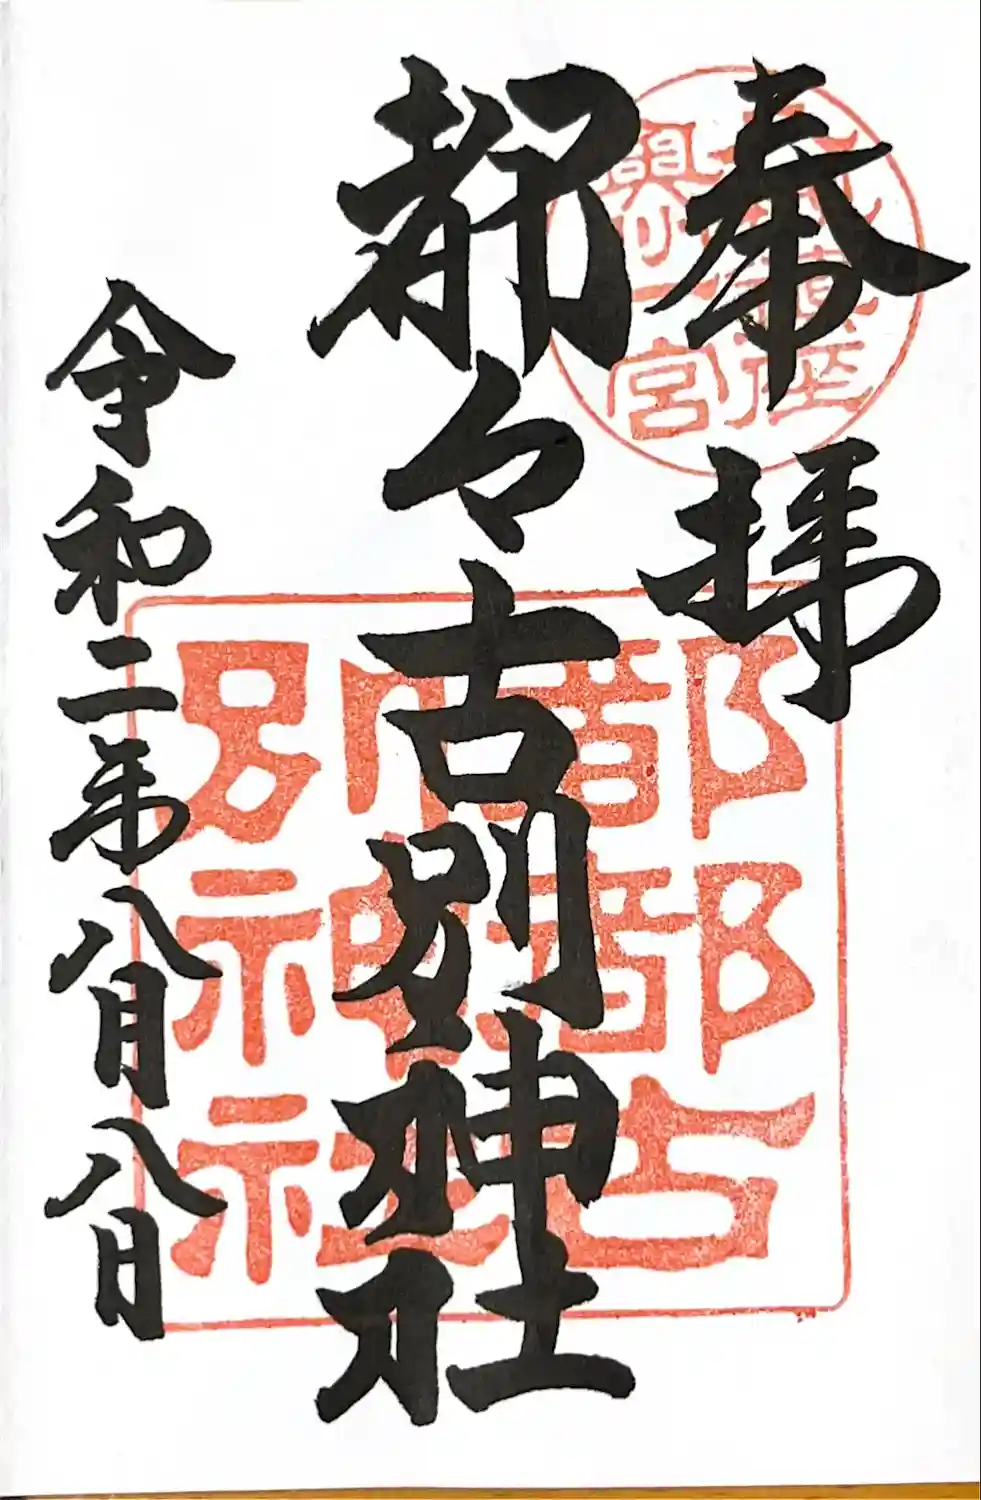 奉拝
都々古別神社
令和二年八月八日
一宮
都都古
別神社